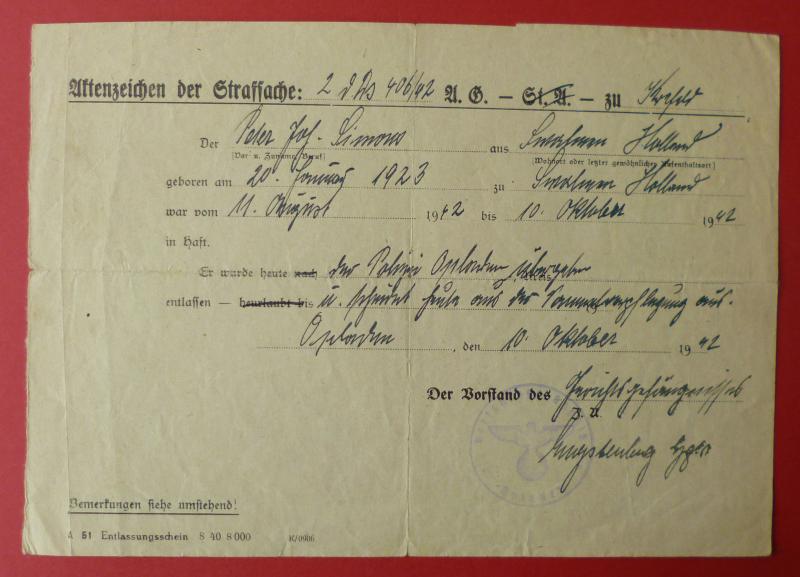 Aktenzeichen der Strafsache: 2 d Ds 406/42 A. G. – St. A. – zu Krefeld
Der Peter Joh. Simons aus Swalmen Holland
(Vor- u. Zuname, Beruf) (Wohnort oder letzter gewöhnlicher Aufenthaltsort)
geboren am 20. Januar 1923 zu Swalmen Holland
war vom 11. August 1942 bis 10. Oktober 1942
in Haft.
Er wurde heute nach der Polizei Opladen übergeben
entlassen – beurlaubt bis u. scheidet heute aus der Sammelverpflegung aus.
Opladen, den 10. Oktober 1942
Der Vorstand des Gerichtsgefängnisses
J. A.
Bemerkungen siehe umstehend!
A 51 Entlassungsschein 8 40 8 000 K/0906